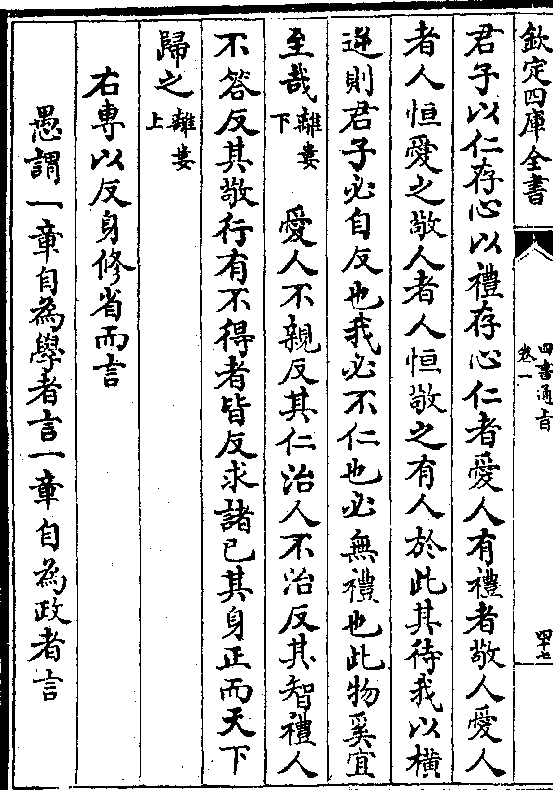 欽定四庫全書
四書通旨
卷一
四十七
君子以仁存心以禮存心仁者愛人有禮者敬人愛人
者人恒愛之敬人者人恒敬之有人於此其待我以橫
逆則君子必自反也我必不仁也必無禮也此物奚宜
至哉離婁下　愛人不親反其仁治人不治反其智禮人
不答反其敬行有不得者皆反求諸已其身正而天下
歸之離婁上
右專以反身修省而言
愚謂一章自為學者言一章自為政者言